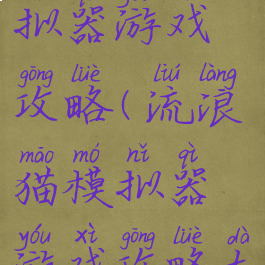 拟器游戏
gōng lüè liú làng
攻略(流浪
māo mó nǐ qì
猫模拟器
yóu xì gōng lüè dà
游戏攻略大